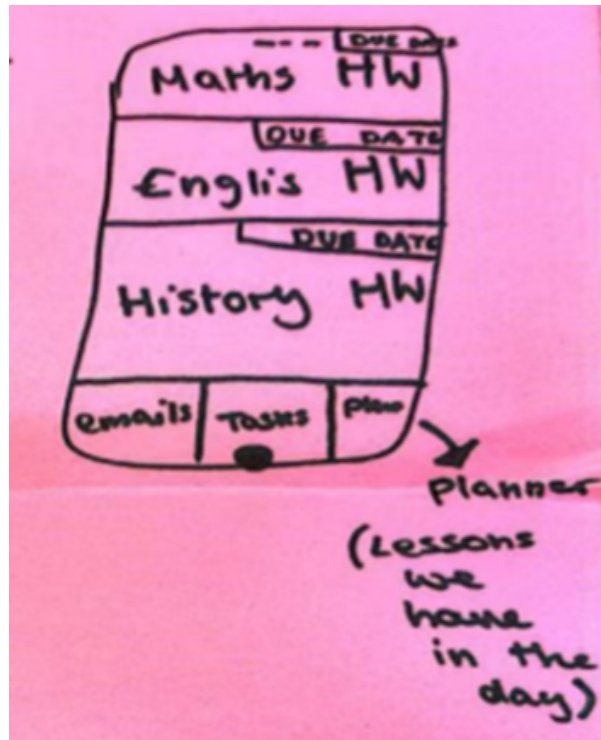 --- DUE DATE
Maths HW
DUE DATE
Englis HW
DUE DATE
History HW
emails Tasks plan
Planner
(Lessons
we
have
in the
day)